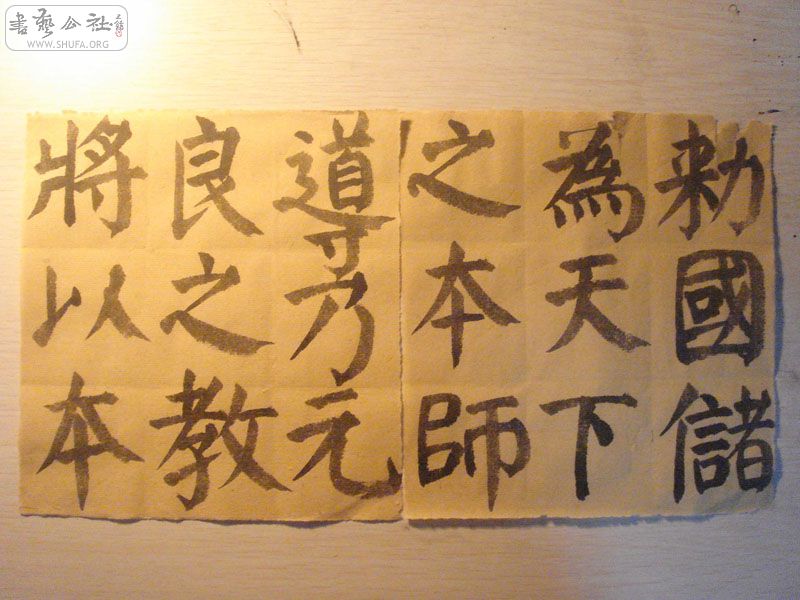 書藝公社
WWW.SHUFA.ORG
勑國儲
為天下
之本師
導乃元
良之教
將以本